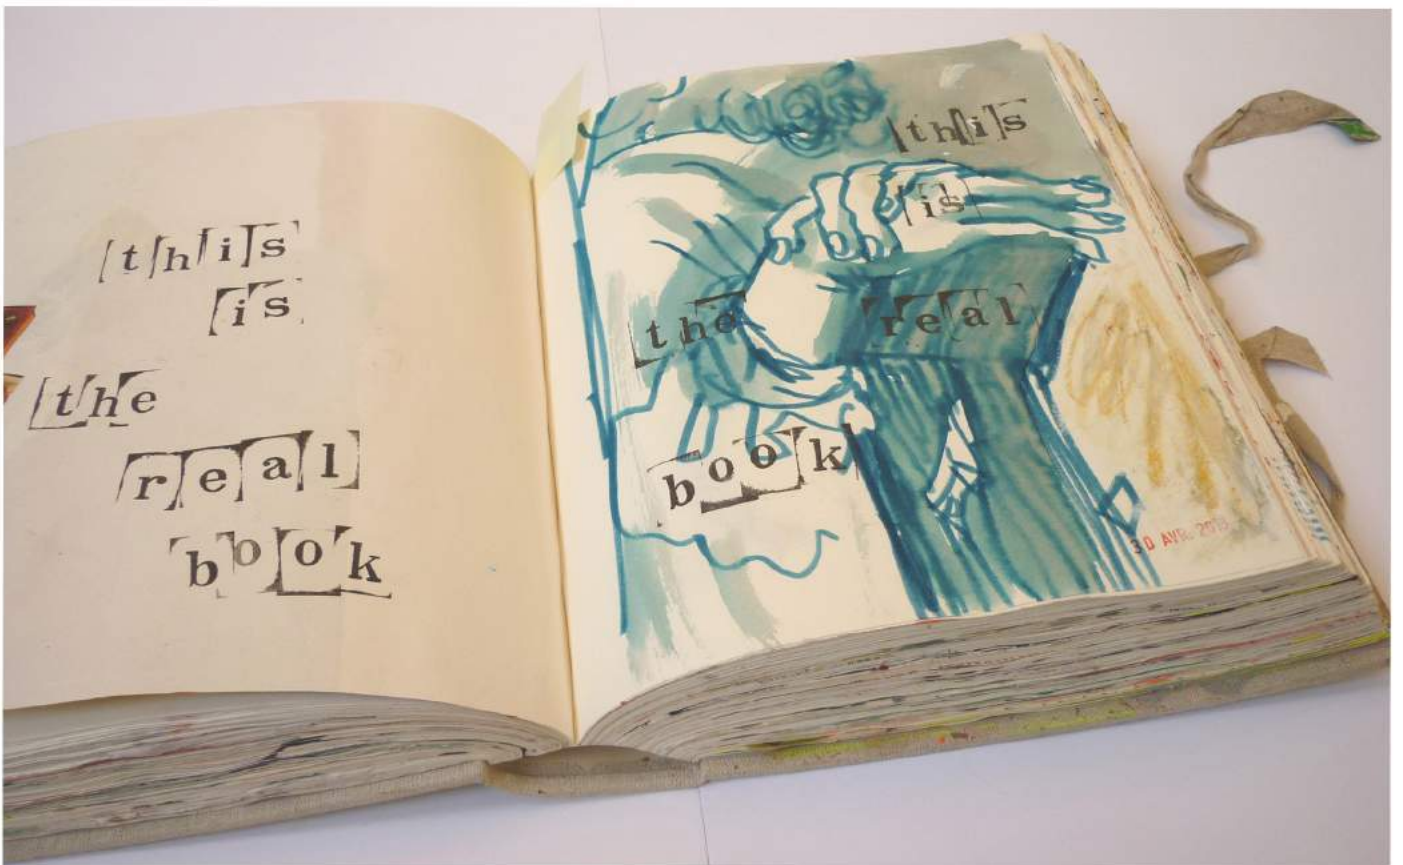 this
is
the
real
book
this
is
the real
book
30 AVR.